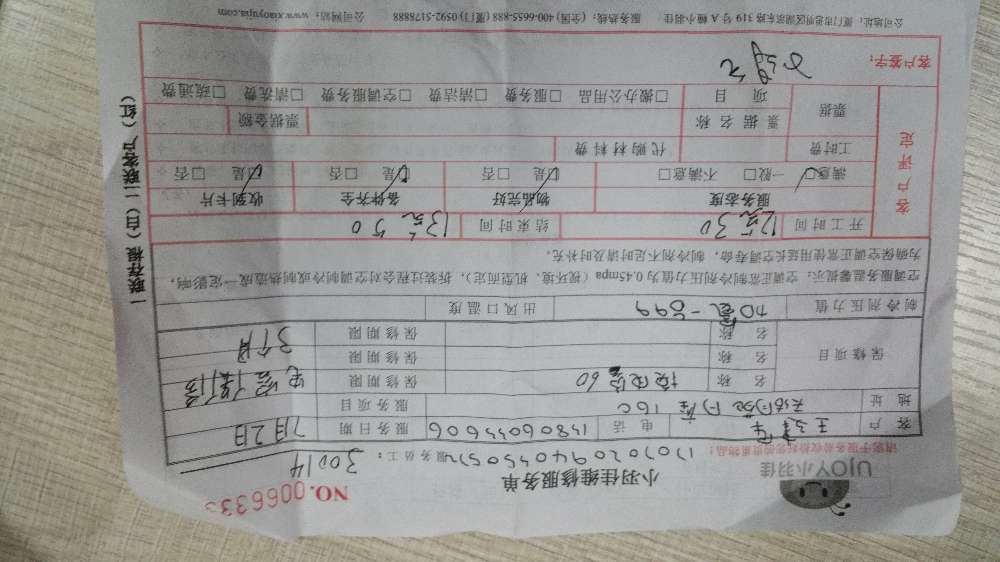 UJOY小羽佳
小羽佳维修服务单
NO.006633
服务员工: 30014
请您于服务前收捡好您的贵重物品:
客户 电话 服务日期 7月2日
地址 16C 服务项目
保修项目 名称 60 保修期限
名称 保修期限 3个月
名称 保修期限
制冷剂压力值 出风口温度
空调服务温馨提示:空调正常制冷剂压力值为0.45mpa(视环境、机型而定),拆装过程会对空调制冷或制热造成一定影响,
为确保空调正常使用延长空调寿命,制冷剂不足时请及时补充。
开工时间 12点30 结束时间 13点50
客户评定
服务态度 物品完好 备件齐全 收到卡片
满意□ 一般□ 不满意□ □是 □否 □是 □否 □是 □否
工时费 代购材料费
票据 票据名称 票据金额
项目 □搬办公用品 □服务费 □清洁费 □空调服务费 □清洗费 □疏通费
客户签字:
公司地址:厦门市思明区湖滨东路319号A幢小羽佳 服务热线:(全国)400-6655-888(厦门)0592-5178888 公司网站:www.xiaoyujia.com
一联存根(白)二联客户(红)